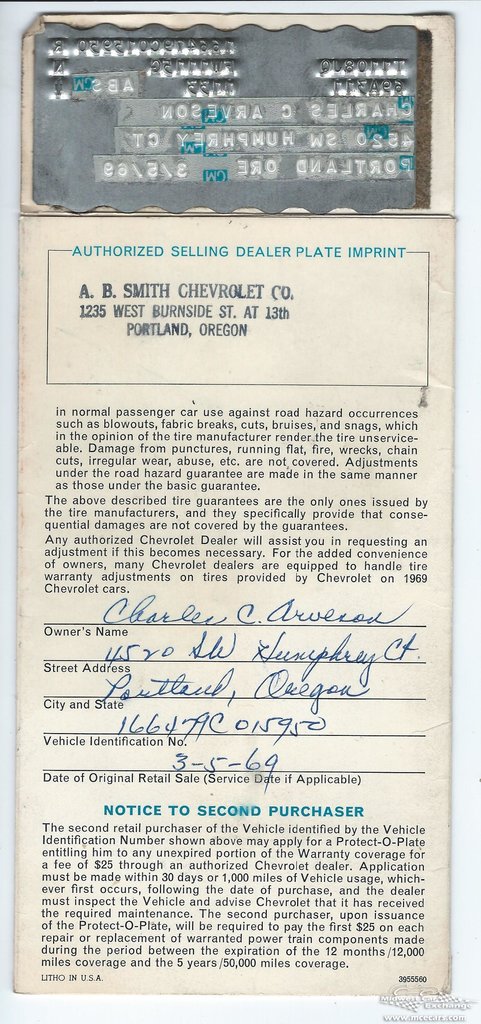 166479C015950 R
T1108JG ZN1115G N
69A211 1155 T
GM ABS
CHARLES C ARVESON
4520 SW HUMPHREY CT
PORTLAND ORE 3/5/69
AUTHORIZED SELLING DEALER PLATE IMPRINT
A. B. SMITH CHEVROLET CO.
1235 WEST BURNSIDE ST. AT 13th
PORTLAND, OREGON
in normal passenger car use against road hazard occurrences
such as blowouts, fabric breaks, cuts, bruises, and snags, which
in the opinion of the tire manufacturer render the tire unservice-
able. Damage from punctures, running flat, fire, wrecks, chain
cuts, irregular wear, abuse, etc. are not covered. Adjustments
under the road hazard guarantee are made in the same manner
as those under the basic guarantee.
The above described tire guarantees are the only ones issued by
the tire manufacturers, and they specifically provide that conse-
quential damages are not covered by the guarantees.
Any authorized Chevrolet Dealer will assist you in requesting an
adjustment if this becomes necessary. For the added convenience
of owners, many Chevrolet dealers are equipped to handle tire
warranty adjustments on tires provided by Chevrolet on 1969
Chevrolet cars.
Charles C. Arveson
Owner's Name
4520 SW Humphrey Ct.
Street Address
Portland, Oregon
City and State
166479C015950
Vehicle Identification No.
3-5-69
Date of Original Retail Sale (Service Date if Applicable)
NOTICE TO SECOND PURCHASER
The second retail purchaser of the Vehicle identified by the Vehicle
Identification Number shown above may apply for a Protect-O-Plate
entitling him to any unexpired portion of the Warranty coverage for
a fee of $25 through an authorized Chevrolet dealer. Application
must be made within 30 days or 1,000 miles of Vehicle usage, which-
ever first occurs, following the date of purchase, and the dealer
must inspect the Vehicle and advise Chevrolet that it has received
the required maintenance. The second purchaser, upon issuance
of the Protect-O-Plate, will be required to pay the first $25 on each
repair or replacement of warranted power train components made
during the period between the expiration of the 12 months/12,000
miles coverage and the 5 years/50,000 miles coverage.
LITHO IN U.S.A. 3955560
Midwest Car Exchange
www.mcecars.com